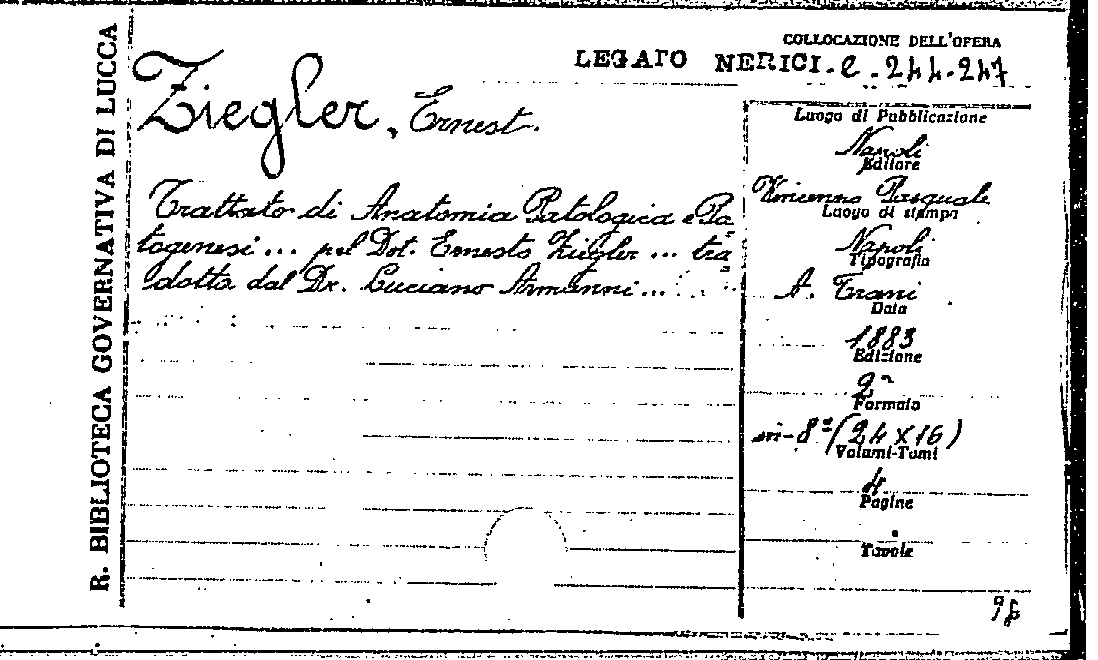 R. BIBLIOTECA GOVERNATIVA DI LUCCA
COLLOCAZIONE DELL'OPERA
LEGATO NERICI. e. 244-247
Ziegler, Ernest.
Trattato di Anatomia Patologica e Pa=
togenesi ... pel Dot. Ernesto Ziegler ... tra=
dotta dal Dr. Luciano Armanni ...
Luogo di Pubblicazione
Napoli
Editore
Vincenzo Pasquale
Luogo di stampa
Napoli
Tipografia
A. Trani
Data
1883
Edizione
2ª
Formato
in-8º (24 X 16)
Volumi-Tomi
4
Pagine
Tavole